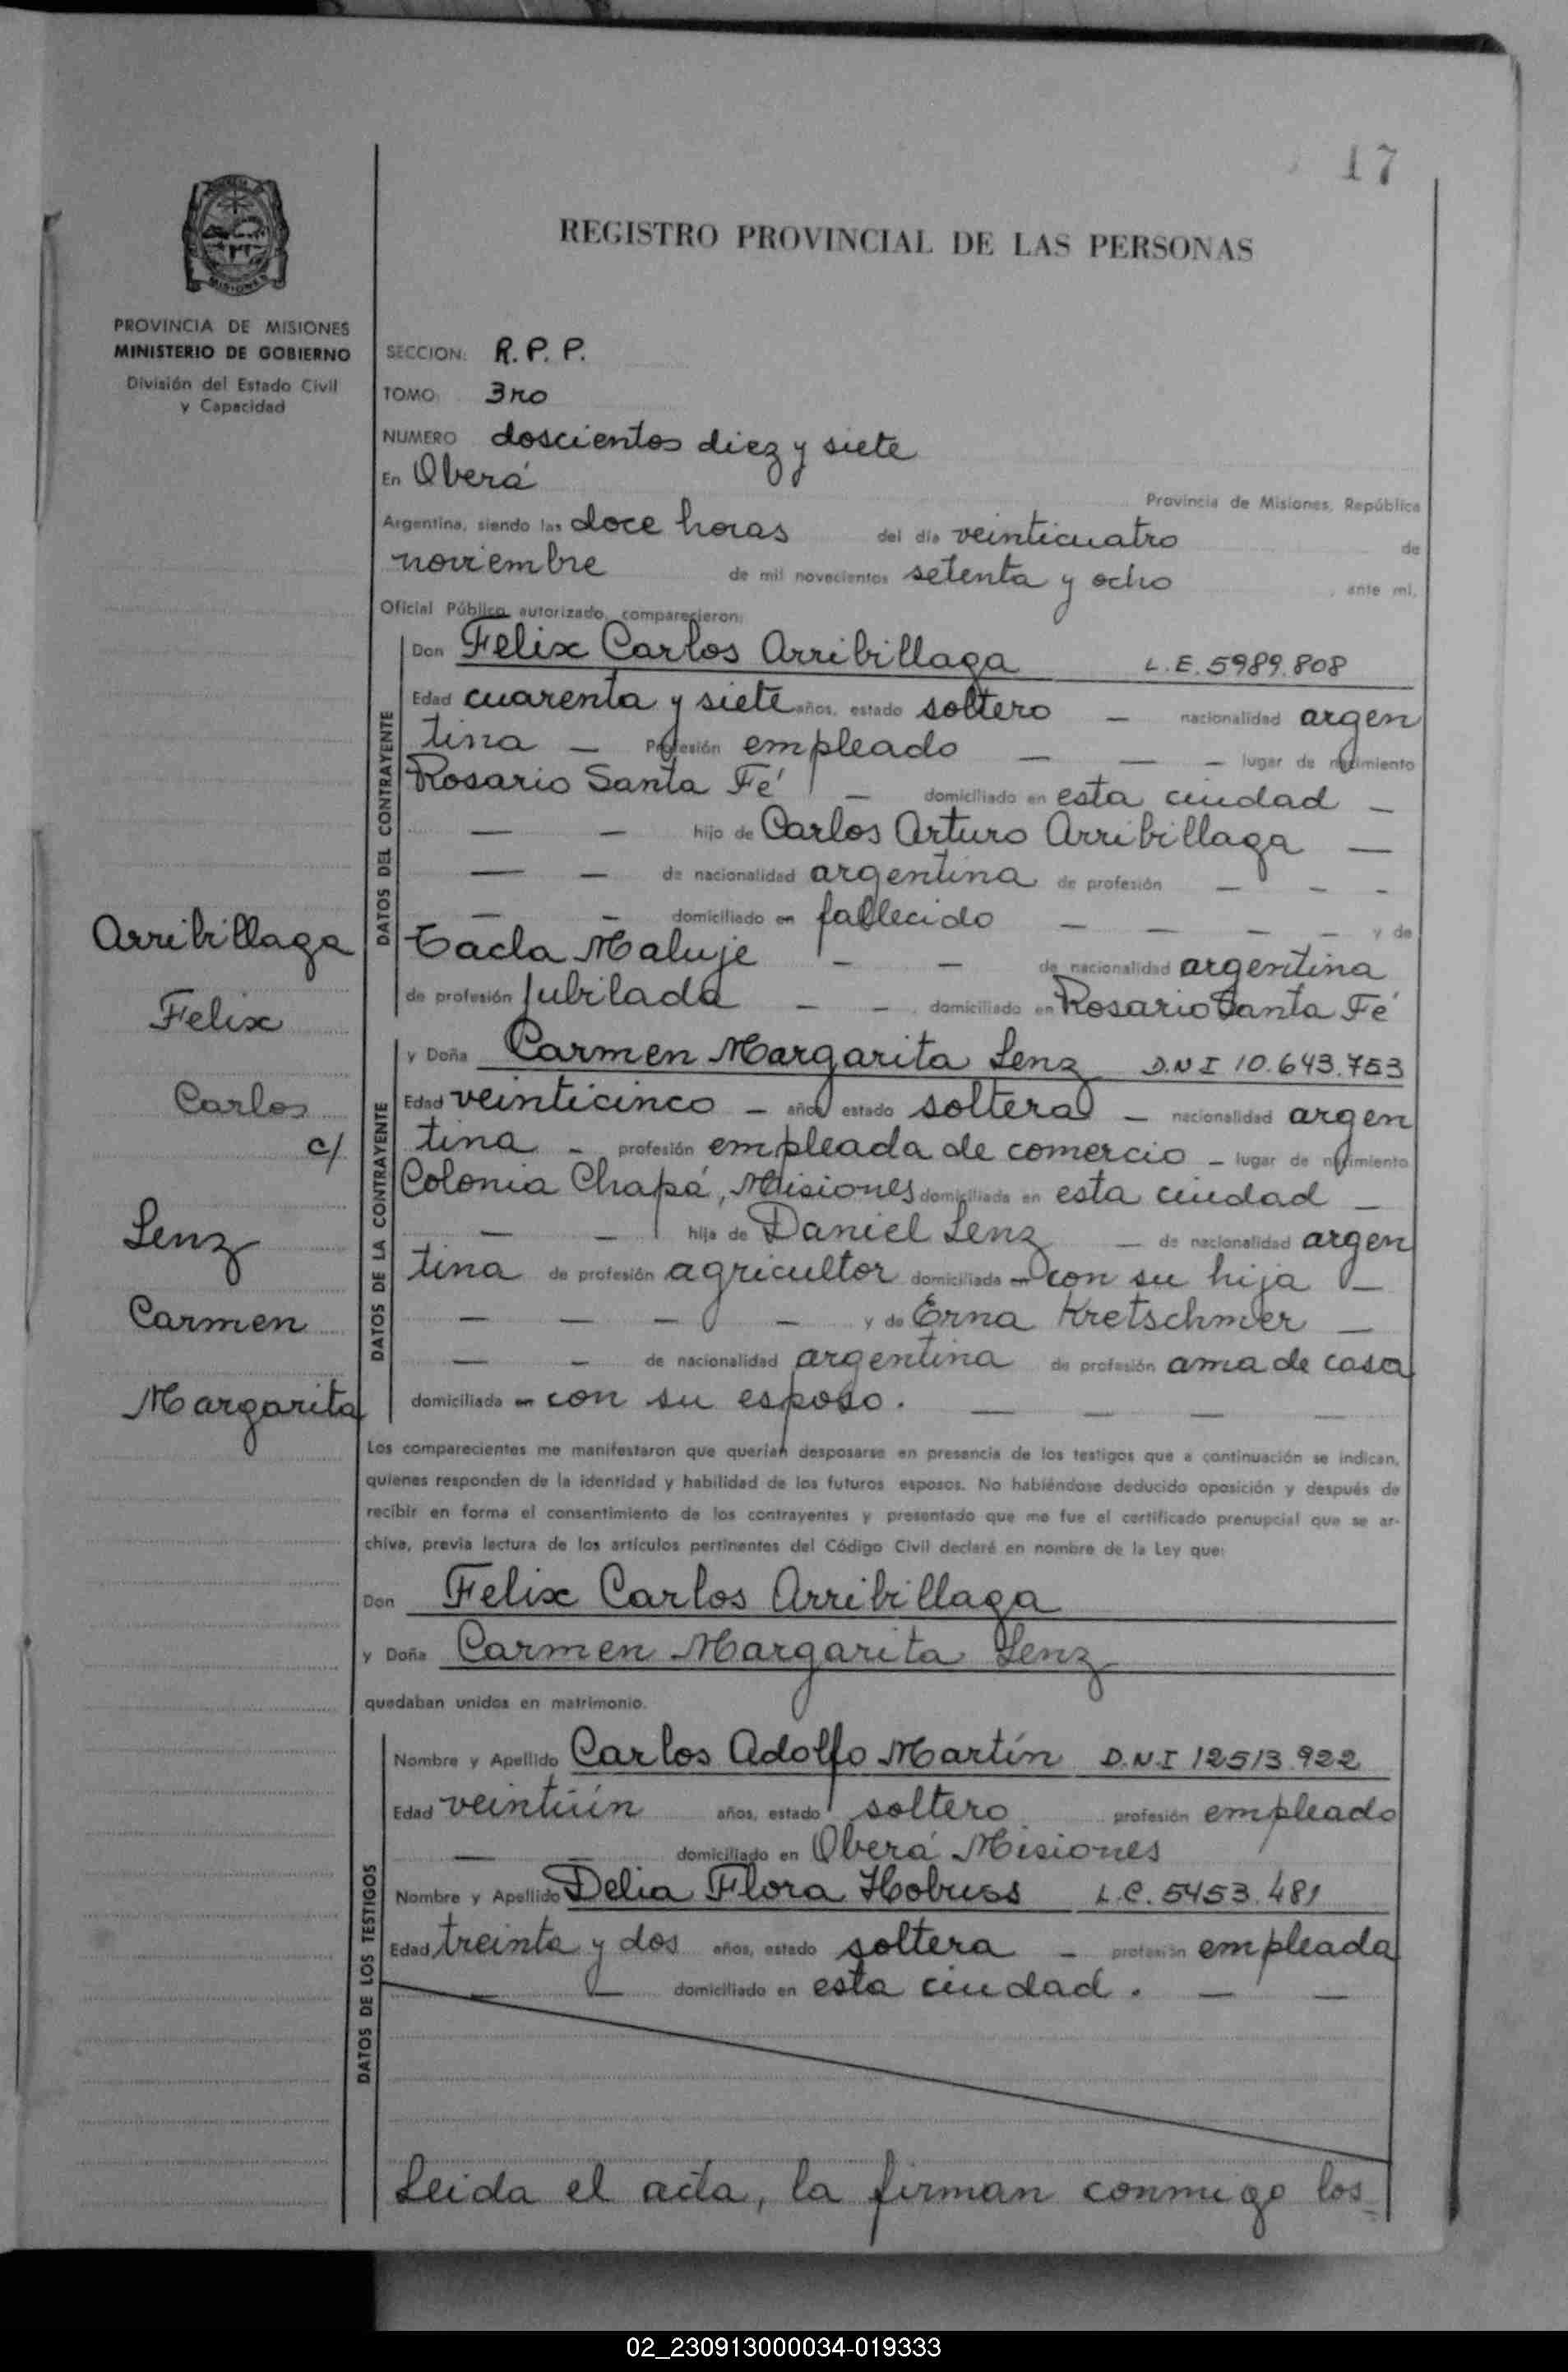 17
REGISTRO PROVINCIAL DE LAS PERSONAS
MISIONES
PROVINCIA DE MISIONES
MINISTERIO DE GOBIERNO
División del Estado Civil
y Capacidad
SECCION: R. P. P.
TOMO: 3ro
NUMERO doscientos diez y siete
En Oberá Provincia de Misiones, República
Argentina, siendo las doce horas del día veinticuatro de
noviembre de mil novecientos setenta y ocho, ante mí,
Oficial Público autorizado, comparecieron:
DATOS DEL CONTRAYENTE
Don Felix Carlos Arribillaga L.E. 5989.808
Edad cuarenta y siete años, estado soltero — nacionalidad argen
tina — Profesión empleado — — — lugar de nacimiento
Rosario Santa Fé — domiciliado en esta ciudad —
— — hijo de Carlos Arturo Arribillaga —
— — de nacionalidad argentina de profesión — — -
— — domiciliado en fallecido — — — — y de
Tacla Maluje — — de nacionalidad argentina
de profesión jubilada — —, domiciliado en Rosario Santa Fé
DATOS DE LA CONTRAYENTE
y Doña Carmen Margarita Lenz D.N I 10.643.753
Edad veinticinco — años estado soltera — nacionalidad argen
tina — profesión empleada de comercio — lugar de nacimiento
Colonia Chapá, Misiones domiciliada en esta ciudad —
— — hija de Daniel Lenz — de nacionalidad argen
tina de profesión agricultor domiciliada en con su hija —
— — — — y de Erna Kretschmer —
— — de nacionalidad argentina de profesión ama de casa
domiciliada en con su esposo. — — — —
Arribillaga
Felix
Carlos
c/
Lenz
Carmen
Margarita
Los comparecientes me manifestaron que querían desposarse en presencia de los testigos que a continuación se indican,
quienes responden de la identidad y habilidad de los futuros esposos. No habiéndose deducido oposición y después de
recibir en forma el consentimiento de los contrayentes y presentado que me fue el certificado prenupcial que se ar-
chiva, previa lectura de los artículos pertinentes del Código Civil declaré en nombre de la Ley que:
Don Felix Carlos Arribillaga
y Doña Carmen Margarita Lenz
quedaban unidos en matrimonio.
DATOS DE LOS TESTIGOS
Nombre y Apellido Carlos Adolfo Martín D.N.I 12513.922
Edad veintiún años, estado soltero profesión empleado
— — domiciliado en Oberá Misiones
Nombre y Apellido Delia Flora Hobuss L.C. 5453.481
Edad treinta y dos años, estado soltera — profesión empleada
— — domiciliado en esta ciudad. — —
Leida el acta, la firman conmigo los
02_230913000034-019333